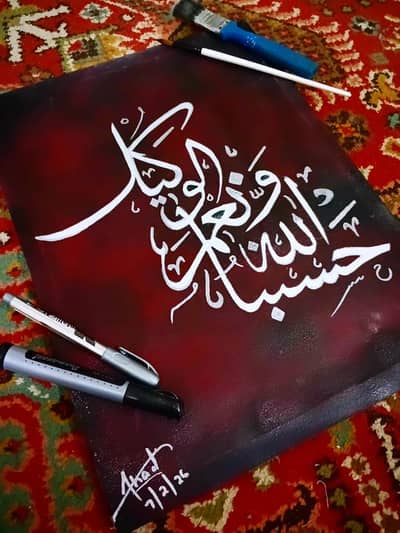 حسبنا الله
ونعم الوكيل
Ahad
7/2/26